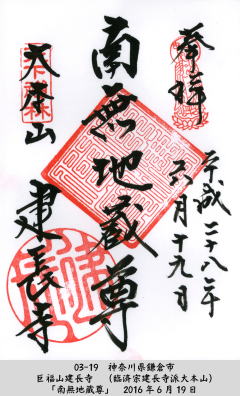 奉拝
平成二十八年
六月十九日
南無地蔵尊
大本山
建長寺
03-19　神奈川県鎌倉市
巨福山建長寺　（臨済宗建長寺派大本山）
「南無地蔵尊」　2016年6月19日